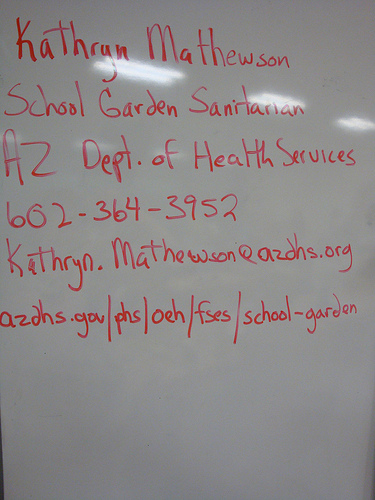 Kathryn Mathewson
School Garden Sanitarian
AZ Dept. of Health Services
602-364-3952
Kathryn.Mathewson@azdhs.org
azdhs.gov/phs/oeh/fses/school-garden